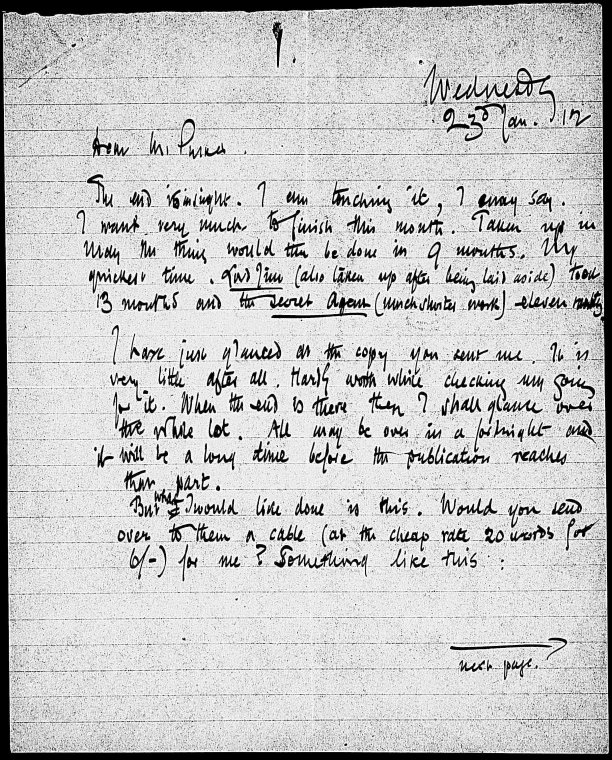 1.
Wednesday
23d Jan. 12
Dear Mr. Pinker.
The end is in sight. I am touching it, I may say.
I want very much to finish this month. Taken up in
May the thing would then be done in 9 months. My
quickest time. Lord Jim (also taken up after being laid aside) took
13 months and the Secret Agent (much shorter work) eleven nearly.
I have just glanced at the copy you sent me. It is
very little after all. Hardly worth while checking my going
for it. When the end is there then I shall glance over
the whole lot. All may be over in a fortnight and
it will be a long time before the publication reaches
that part.
But what I would like done is this. Would you send
over to them a cable (at the cheap rate 20 words for
6/-) for me? Something like this:
next page.